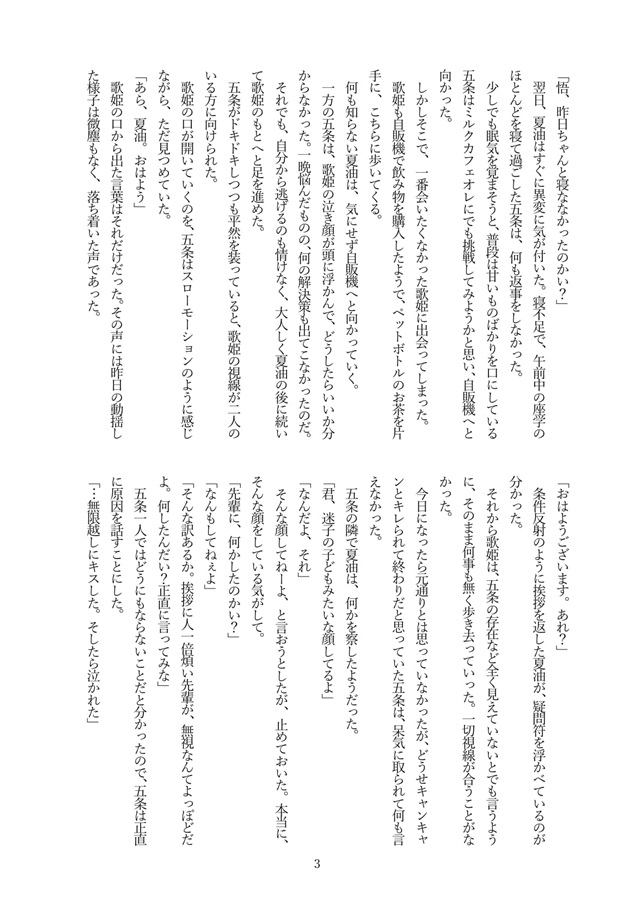 「悟、昨日ちゃんと寝なかったのかい？」
翌日、夏油はすぐに異変に気が付いた。寝不足で、午前中の座学の
ほとんどを寝て過ごした五条は、何も返事をしなかった。
少しでも眠気を覚まそうと、普段は甘いものばかりを口にしている
五条はミルクカフェオレにでも挑戦してみようかと思い、自販機へと
向かった。
しかしそこで、一番会いたくなかった歌姫に出会ってしまった。
歌姫も自販機で飲み物を購入したようで、ペットボトルのお茶を片
手に、こちらに歩いてくる。
何も知らない夏油は、気にせず自販機へと向かっていく。
一方の五条は、歌姫の泣き顔が頭に浮かんで、どうしたらいいか分
からなかった。一晩悩んだものの、何の解決策も出てこなかったのだ。
それでも、自分から逃げるのも情けなく、大人しく夏油の後に続い
て歌姫のもとへと足を進めた。
五条がドキドキしつつも平然を装っていると、歌姫の視線が二人の
いる方に向けられた。
歌姫の口が開いていくのを、五条はスローモーションのように感じ
ながら、ただ見つめていた。
「あら、夏油。おはよう」
歌姫の口から出た言葉はそれだけだった。その声には昨日の動揺し
た様子は微塵もなく、落ち着いた声であった。
「おはようございます。あれ？」
条件反射のように挨拶を返した夏油が、疑問符を浮かべているのが
分かった。
それから歌姫は、五条の存在など全く見えていないとでも言うよう
に、そのまま何事も無く歩き去っていった。一切視線が合うことがな
かった。
今日になったら元通りとは思っていなかったが、どうせキャンキャ
ンとキレられて終わりだと思っていた五条は、呆気に取られて何も言
えなかった。
五条の隣で夏油は、何かを察したようだった。
「君、迷子の子どもみたいな顔してるよ」
「なんだよ、それ」
そんな顔してねーよ、と言おうとしたが、止めておいた。本当に、
そんな顔をしている気がして。
「先輩に、何かしたのかい？」
「なんもしてねぇよ」
「そんな訳あるか。挨拶に人一倍煩い先輩が、無視なんてよっぽどだ
よ。何したんだい？正直に言ってみな」
五条一人ではどうにもならないことだと分かったので、五条は正直
に原因を話すことにした。
「…無限越しにキスした。そしたら泣かれた」
3